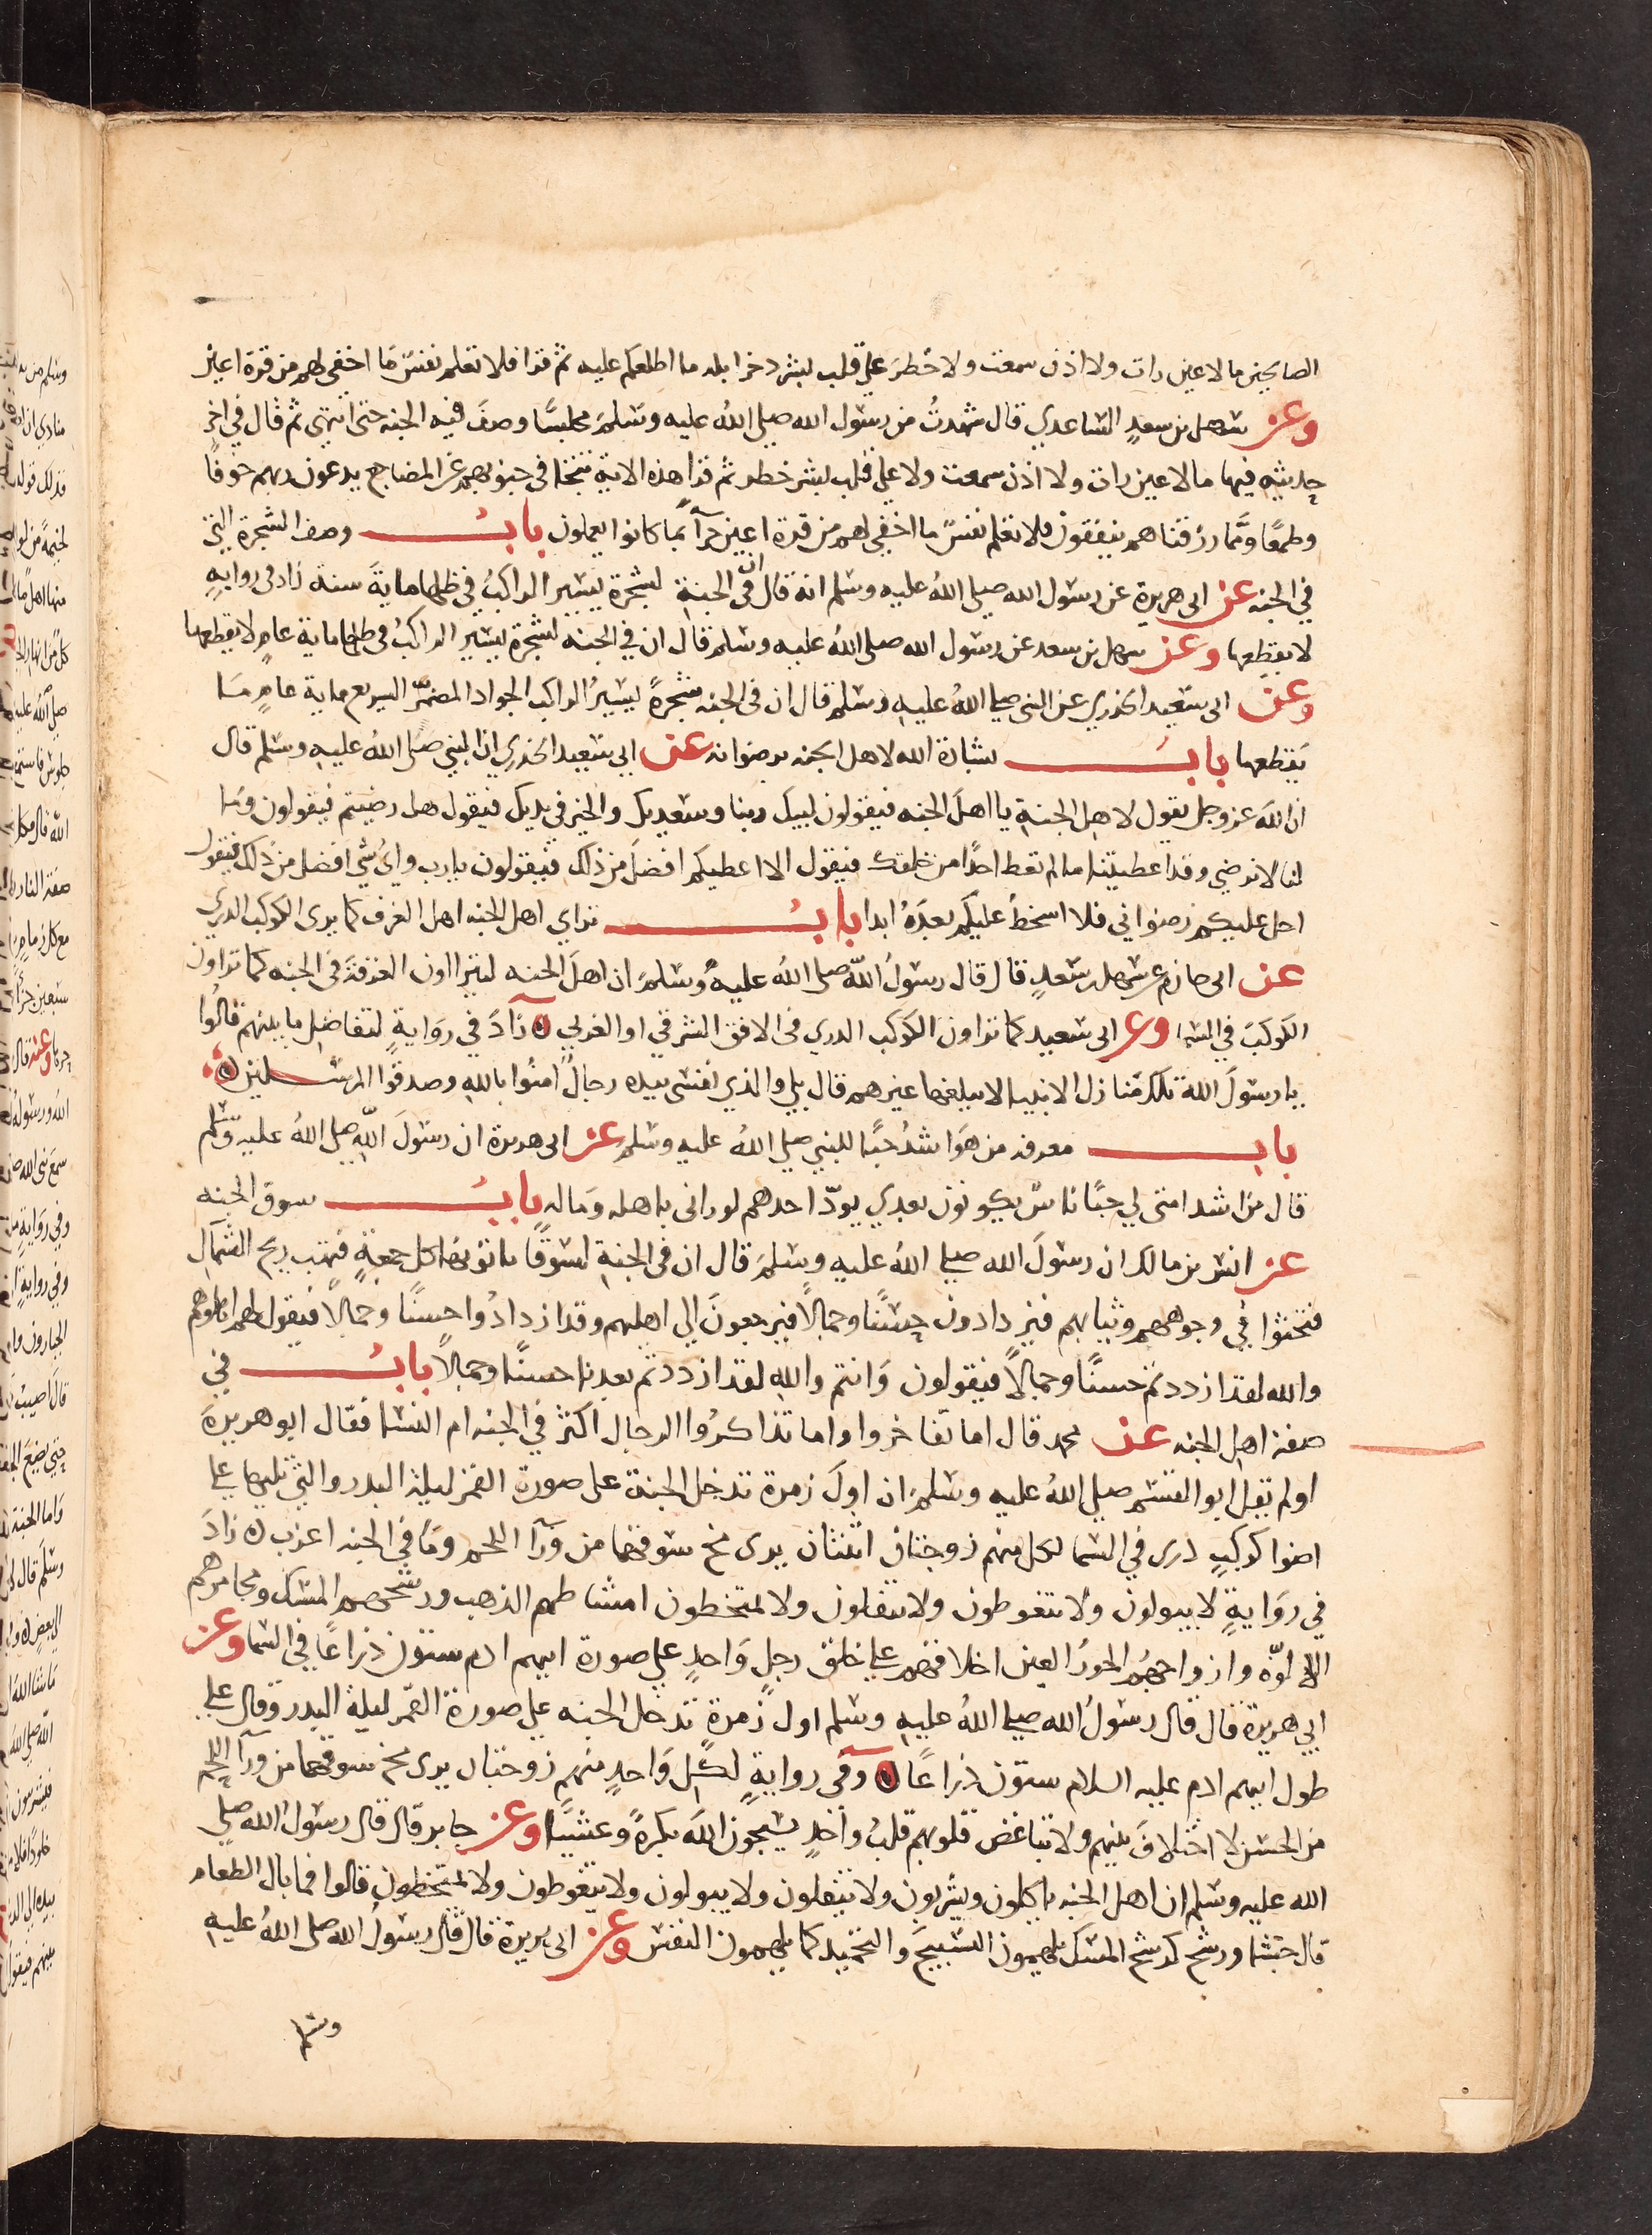 الصالحين ما لا عين رات ولا اذن سمعت ولا خطر علي قلب بشر ذخرا بله ما اطلعكم عليه ثم قرا فلا تعلم نفس مَا اخفي لهم من قرة اعين
وعن سهل بن سعدٍ الساعدي قال شهدتُ من رسول الله صلي اللهُ عليه وسَلمَ مجلسًا وصفَ فيه الجنه حتى انتهى ثم قال في اخرِ
حديثهِ فيها ما لا عين رات ولا اذن سمعت ولا على قلب بشر خطر ثم قرا هذه الاية تتجافى جنوبهم عن المضاجع يدعون ربهم خوفًا
وطمعًا وممَّا رزقناهم ينفقون فلا تعلم نفسٌ ما اخفي لهم من قرة اعين جزآً بما كانوا يعملون بابُ وصف الشجرة التي
في الجنه عن ابى هريرة عن رسول الله صلي اللهُ عليه وسلم انهُ قال ان في الجنةِ لشجرة يسير الراكبُ في ظلها ماية سنة زاد في روايةٍ
لا يقطعها وعن سهل بن سعد عن رسول الله صلى اللهُ عليه وسَلم قال ان في الجنه لشجرة يسير الراكبُ في ظلها ماية عامٍ لا يقطعها
وعن ابى سَعيد الخدري عن النبى صلي اللهُ عليهِ وسَلم قال ان فى الجنه شجرةً يسيرُ الراكب الجواد المضمّر السريع ماية عامٍ مَا
يَقطعها بابُ بشارة الله لاهل الجنه برضوانه عن ابي سَعيد الخدري ان النبي صَلى اللهُ عليهِ وسَلم قال
ان اللهَ عز وجل يقول لاهل الجنةِ يا اهلَ الجنه فيقولون لبيكَ ربنا وسَعديك والخير في يديك فيقول هل رضيتم فيقولون ومَا
لنا لا نرضي وقد اعطيتنا ما لم تعط احدًا من خلقك فيقول الا اعطيكم افضلَ من ذلك فيقولون يا رب وايُ شي افضل من ذلك فيقول
احل عليكم رضواني فلا اسخطُ عليكم بعدَهُ ابدا بابُ تراي اهل الجنه اهل الغرف كما يرى الكوكب الدري
عن ابى حازم عن سهل بن سَعدٍ قال قال رسولُ اللّه صلى اللهُ عليهِ وسَلمَ ان اهلَ الجنه ليتراون الغرفةَ فى الجنه كما تراون
الكوكبَ في السمَا وعن ابى سَعيد كما تراون الكوكب الدري فى الافق الشرقي او الغربي ه زادَ في روَايةٍ لتفاضل ما بينهم قالُوا
يا رسُولَ اللهِ تلك مَنازل الانبيا لا يبلغها غيرهم قال بلى والذي نفسى بيده رجالٌ امنُوا باللهِ وصدقُوا المرسلين ه
باب معرفه من هوَ اشدُ حبًا للنبي صلي اللهُ عليه وسَلمَ عن ابى هريرة ان رسُولَ اللّهِ صلي اللهُ عليه وسَلم
قال من اشد امتى لي حبًا ناسٌ يكونون بعدي يودّ احدهم لو رانى باهله ومَاله بابُ سوق الجنه
عن انس بن مالك ان رسولَ الله صلي اللهُ عليه وسَلمَ قال ان فى الجنةِ لسُوقًا ياتونها كل جمعةٍ فتهب ريح الشمال
فتحثوا في وجوههم وثيابهم فيزدادون حسنًا وجمالًا فيرجعونَ الي اهليهم وقد ازدادُوا حسنًا وجمالًا فيقول لهم اهلوهم
والله لقد ازددتم حسنًا وجمالًا فيقولون وَانتم واللهِ لقد ازددتم بعدنا حسنًا وجمالًا بابُ في
صفة اهل الجنه عن محمد قال اما تفاخروا واما تذاكرُوا الرجال اكثر في الجنه ام النسَا فقال ابو هريرةَ
اولم يقل ابو القسم صلي اللهُ عليه وسَلمَ ان اولَ زمرة تدخل الجنةَ على صورة القمر ليلة البدر والتي تليها علي
اضوا كوكبٍ دري في السَما لكل منهم زوجتان اثنتان يرى مخ سوقهما من ورَآ اللحم ومَا في الجنه اعزب ه زادَ
في روَايةٍ لا يبولون ولا يتغوطون ولا يتفلون ولا يمتخطون امشاطهم الذهب ورشحهم المسك ومجامرهم
الالوّه وازواجهُم الحورُ العين اخلاقهم علي خلق رجلٍ وَاحدٍ علي صورة ابيهم ادم ستون ذراعًا في السَما وعن
ابي هريرة قال قال رسُولُ الله صلي اللهُ عليهِ وسَلم اول زمرة تدخل الجنه علي صورة القمر ليلة البدر وقال علي
طول ابيهم ادم عليه السلام ستون ذراعًا ه وَفي روايةٍ لكل وَاحدٍ منهم زوجتان يرى مخ سوقهما من ورآ اللحم
من الحسن لا اختلافَ بينهم ولا تباغض قلوبهم قلبُ واحدٍ يسبحون اللهَ بكرةً وعشيًا وعن جابر قال قال رسول الله صلي
الله عليه وسَلم ان اهلَ الجنه ياكلون ويشربون ولا يتفلون ولا يبولون ولا يتغوطون ولا يمتخطون قالوا فما بال الطعام
قال جشا ورشح كرشح المسك يلهمون التسبيحَ والتحميد كما يلهمون النفس وعن ابى هريرة قال قال رسُولُ الله صلى اللهُ عليهِ
وسَلم